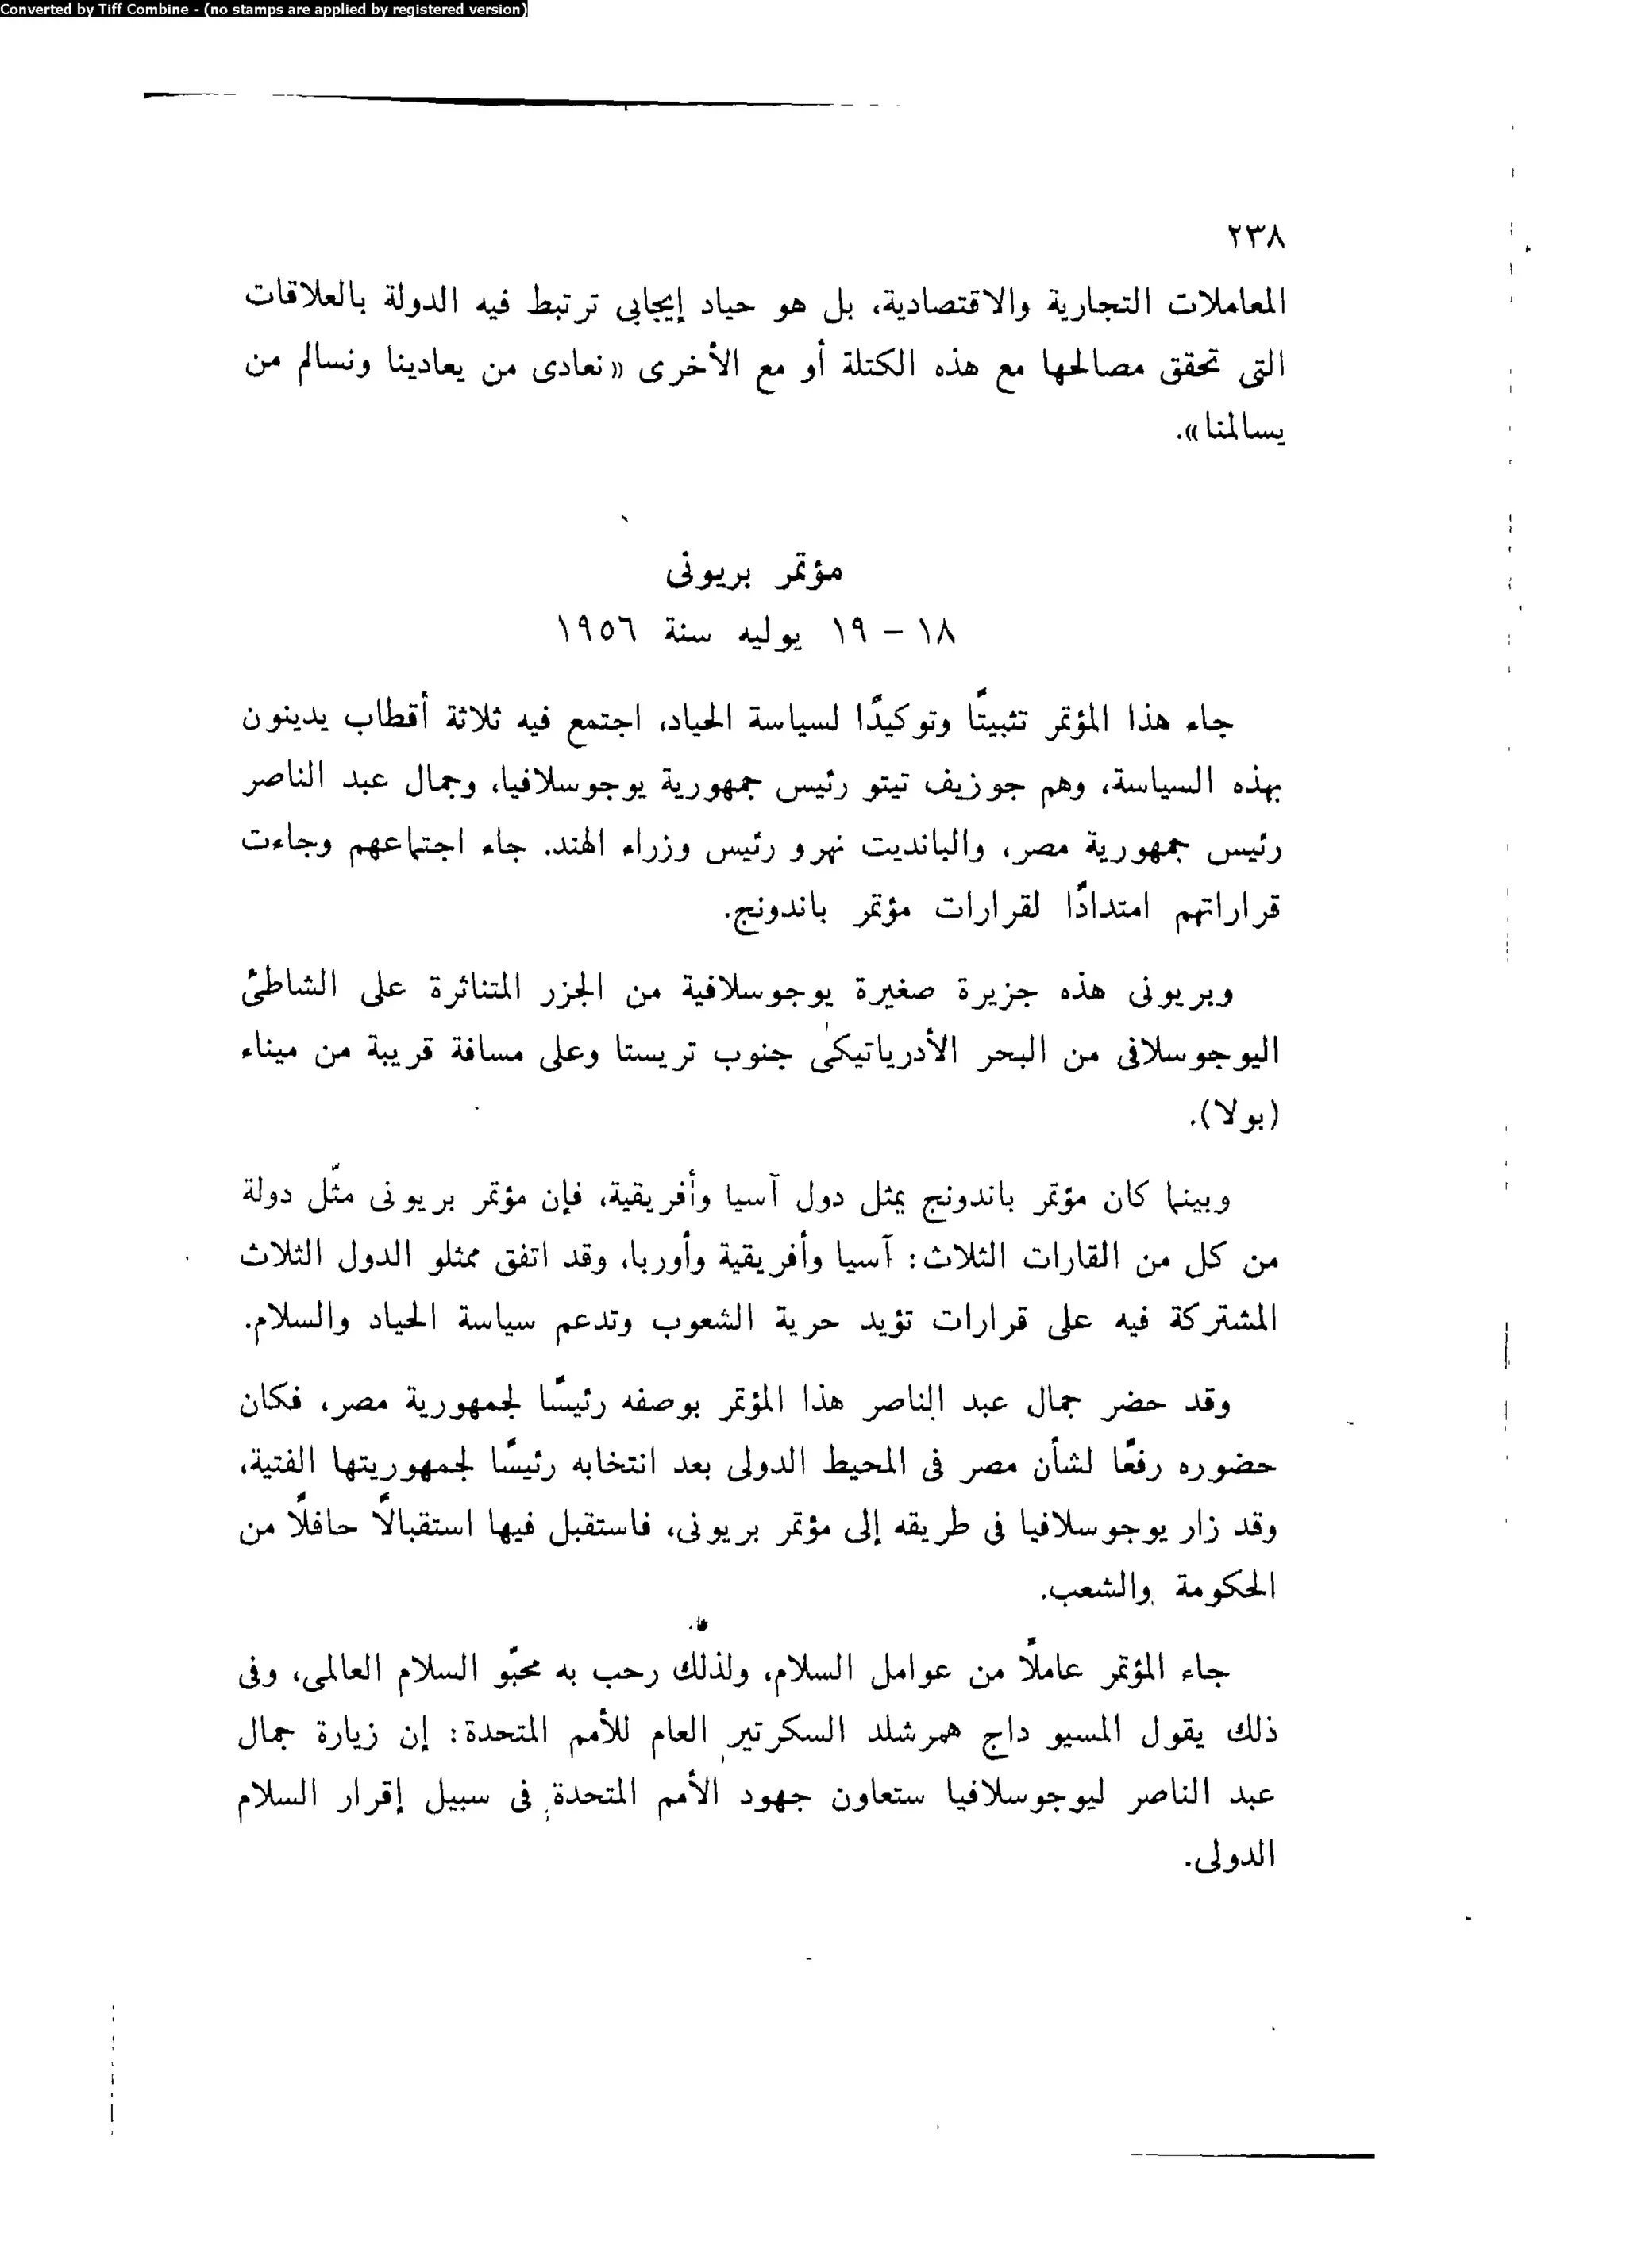 Converted by Tiff Combine - (no stamps are applied by registered version)
٢٣٨
المعاملات التجارية والاقتصادية، بل هو حياد إيجابى ترتبط فيه الدولة بالعلاقات
التى تحقق مصالحها مع هذه الكتلة أو مع الأخرى «نعادى من يعادينا ونسالم من
يسالمنا».
مؤتمر بريونى
١٨ - ١٩ يوليه سنة ١٩٥٦
جاء هذا المؤتمر تثبيتًا وتوكيدًا لسياسة الحياد، اجتمع فيه ثلاثة أقطاب يدينون
بهذه السياسة، وهم جوزيف تيتو رئيس جمهورية يوجوسلافيا، وجمال عبد الناصر
رئيس جمهورية مصر، والبانديت نهرو رئيس وزراء الهند. جاء اجتماعهم وجاءت
قراراتهم امتدادًا لقرارات مؤتمر باندونج.
وبريونى هذه جزيرة صغيرة يوجوسلافية من الجزر المتناثرة على الشاطئ
اليوجوسلافى من البحر الأدرياتيكى جنوب تريستا وعلى مسافة قريبة من ميناء
(بولا).
وبينما كان مؤتمر باندونج يمثل دول آسيا وأفريقية، فإن مؤتمر بريونى مثّل دولة
من كل من القارات الثلاث: آسيا وأفريقية وأوربا، وقد اتفق ممثلو الدول الثلاث
المشتركة فيه على قرارات تؤيد حرية الشعوب وتدعم سياسة الحياد والسلام.
وقد حضر جمال عبد الناصر هذا المؤتمر بوصفه رئيسًا لجمهورية مصر، فكان
حضوره رفعًا لشأن مصر فى المحيط الدولى بعد انتخابه رئيسًا لجمهوريتها الفتية،
وقد زار يوجوسلافيا فى طريقه إلى مؤتمر بريونى، فاستقبل فيها استقبالًا حافلًا من
الحكومة والشعب.
جاء المؤتمر عاملًا من عوامل السلام، ولذلك رحب به محبّو السلام العالمى، وفى
ذلك يقول المسيو داج همرشلد السكرتير العام للأمم المتحدة: إن زيارة جمال
عبد الناصر ليوجوسلافيا ستعاون جهود الأمم المتحدة فى سبيل إقرار السلام
الدولى.